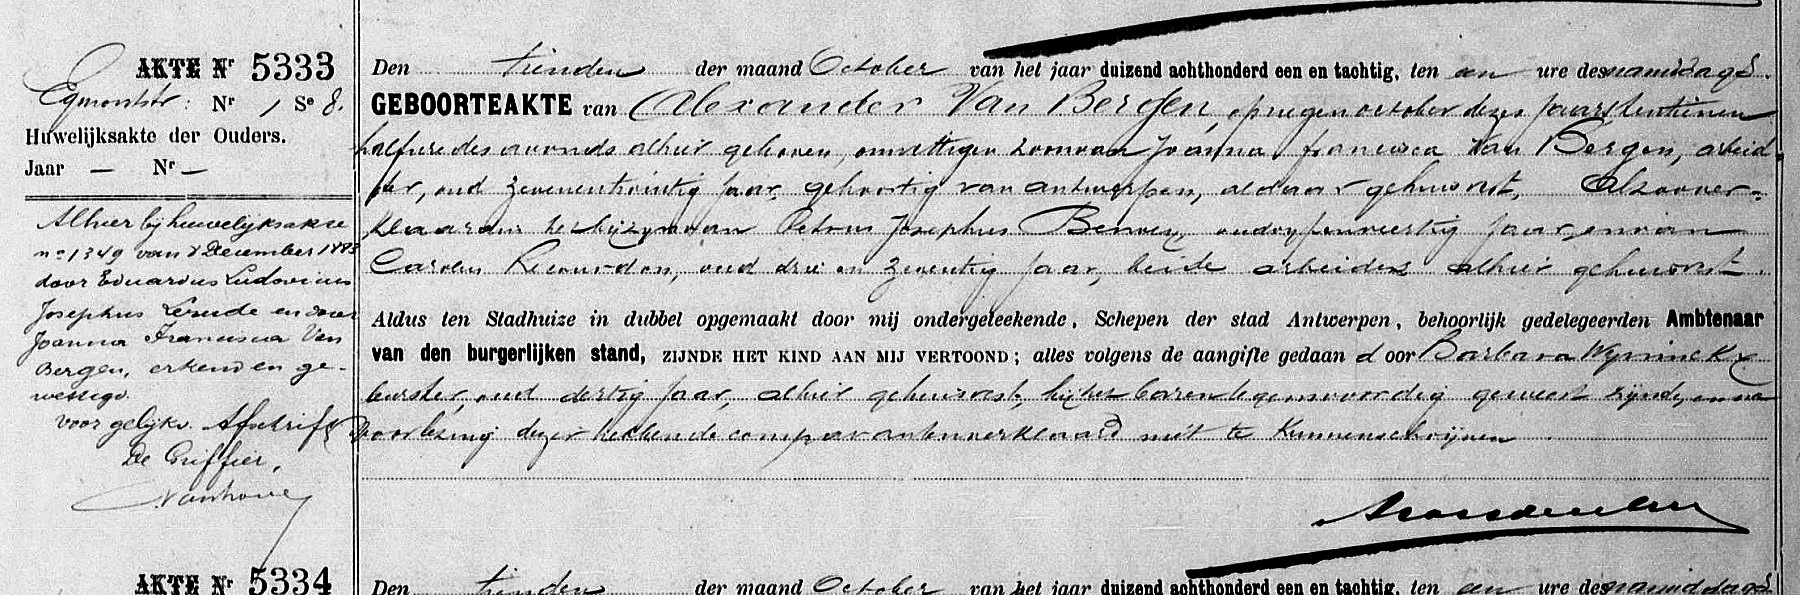 AKTE Nr 5333
Egmontstr: Nr 1 Se 8.
Huwelijksakte der Ouders.
Jaar — Nr —
Alhier bij huwelijksakte
no 1349 van 8 December 1883
door Eduardus Ludovicus
Josephus en door
Joanna Francisca Van
Bergen, erkend en ge-
wettigd.
Voor gelijkv. Afschrift
De Griffier,
Den tienden der maand October van het jaar duizend achthonderd een en tachtig, ten een ure des namiddags.
GEBOORTEAKTE van Alexander Van Bergen, op negen october dezes jaars, ten tienen
half ure des avonds alhier geboren, onwettigen zoon van Joanna Francisca Van Bergen, arbeid
ster, oud zevenentwintig jaar, geboortig van Antwerpen, aldaar gehuisvest. Alzoo ver-
klaard in het bijzijn van Petrus Josephus oud vyfenveertig jaar, en van
Carolus oud drie en zeventig jaar, beide arbeiders alhier gehuisvest.
Aldus ten Stadhuize in dubbel opgemaakt door mij ondergeteekende, Schepen der stad Antwerpen, behoorlijk gedelegeerden Ambtenaar
van den burgerlijken stand, ZIJNDE HET KIND AAN MIJ VERTOOND; alles volgens de aangifte gedaan door Barbara Wyninckx
oud dertig jaar, alhier gehuisvest, bij het baren tegenwoordig geweest zijnde, en na
voorlezing dezer hebben de comparanten verklaard niet te kunnen schrijven.
AKTE Nr 5334
Den tienden der maand October van het jaar duizend achthonderd een en tachtig, ten een ure des namiddags